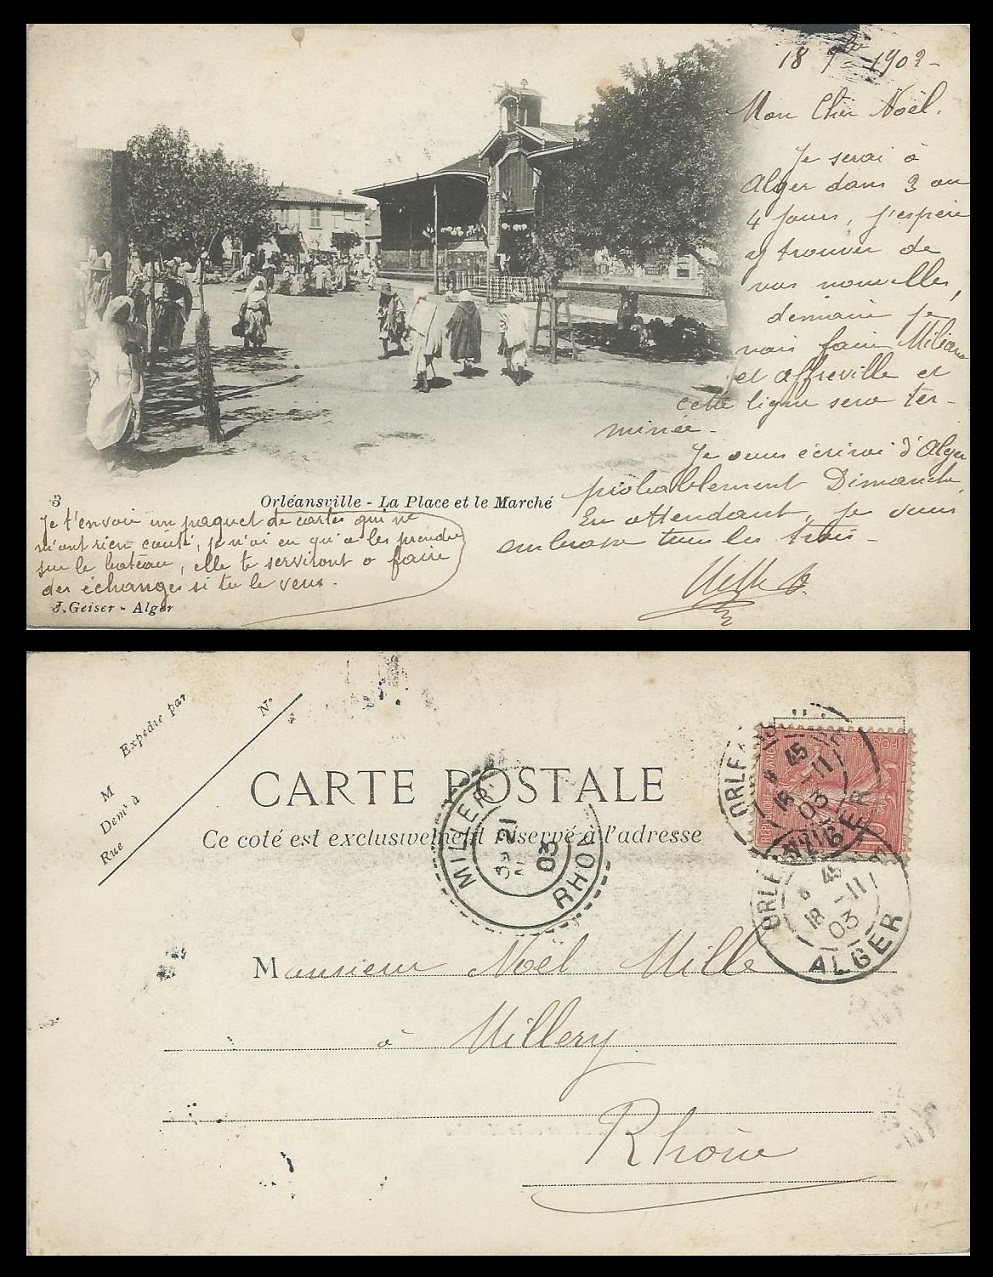 18 1902-
Mon Cher Noël.
Je serai à
Alger dans 3 ou
4 jours, j'espère
y trouver de
vos nouvelles,
demain je
vais faire Miliana
et Affreville et
cette ligne sera ter-
minée-
Je vous écrirai d'Alger
probablement Dimanche,
En attendant, je vous
embrasse tous les trois-
3
Orléansville - La Place et le Marché
Je t'envoie un paquet de cartes qui ne
m'ont rien couté, je n'ai eu qu'à les prendre
sur le bateau, elle te serviront à faire
des échanges si tu le veux.
J. Geiser - Alger
Expédié par
M
Dem^t à
Rue
N°
CARTE POSTALE
Ce coté est exclusivement réservé à l'adresse
MILLERY
21
03
RHONE
ORLEANSVILLE
45
18 -11
03
ALGER
ORLEANSVILLE
45
18 -11
03
ALGER
Monsieur Noël Mille
à Millery
Rhône